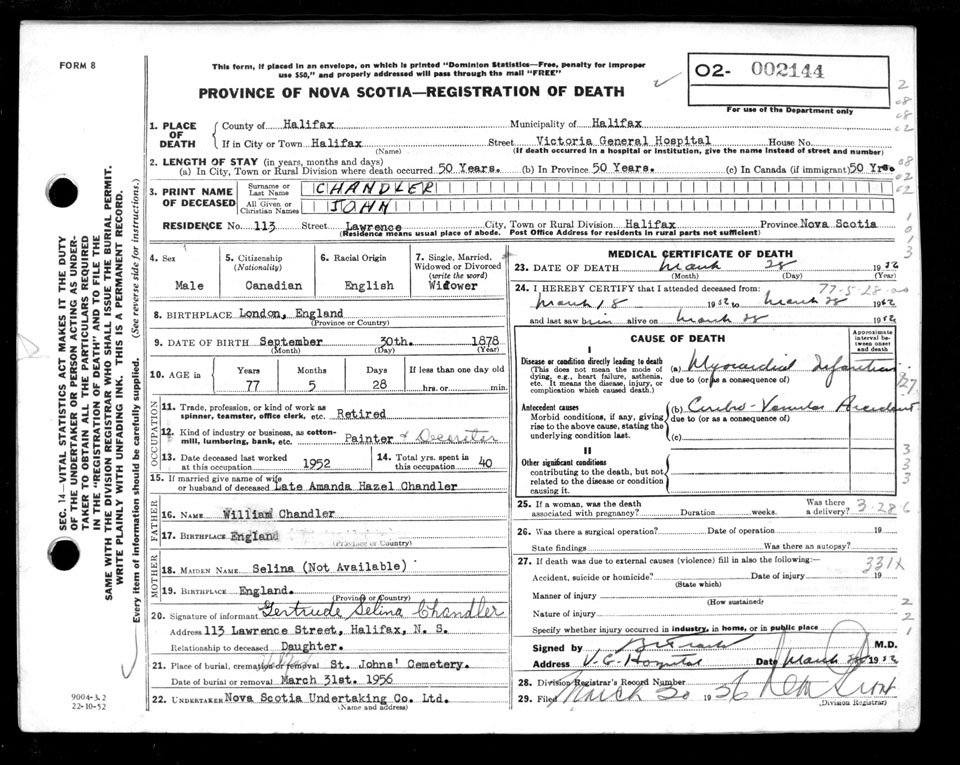 FORM 8
This form, if placed in an envelope, on which is printed "Dominion Statistics—Free, penalty for improper
use $50," and properly addressed will pass through the mail "FREE"
PROVINCE OF NOVA SCOTIA—REGISTRATION OF DEATH
02- 002144
For use of the Department only
1. PLACE OF DEATH
County of Halifax Municipality of Halifax
If in City or Town Halifax Street Victoria General Hospital House No.
(Name) (If death occurred in a hospital or institution, give the name instead of street and number)
2. LENGTH OF STAY (in years, months and days)
(a) In City, Town or Rural Division where death occurred 50 Years. (b) In Province 50 Years. (c) In Canada (if immigrant) 50 Yrs.
3. PRINT NAME OF DECEASED
Surname or Last Name CHANDLER
All Given or Christian Names JOHN
RESIDENCE No. 113 Street Lawrence City, Town or Rural Division Halifax Province Nova Scotia
(Residence means usual place of abode. Post Office Address for residents in rural parts not sufficient)
4. Sex
Male
5. Citizenship (Nationality)
Canadian
6. Racial Origin
English
7. Single, Married, Widowed or Divorced (write the word)
Widower
8. BIRTHPLACE London, England
(Province or Country)
9. DATE OF BIRTH September 30th. 1878
(Month) (Day) (Year)
10. AGE in Years Months Days If less than one day old
77 5 28 hrs. or min.
OCCUPATION
11. Trade, profession, or kind of work as spinner, teamster, office clerk, etc. Retired
12. Kind of industry or business, as cotton-mill, lumbering, bank, etc. Painter & Decorator
13. Date deceased last worked at this occupation 1952
14. Total yrs. spent in this occupation 40
15. If married give name of wife or husband of deceased Late Amanda Hazel Chandler
FATHER
16. NAME William Chandler
17. BIRTHPLACE England
(Province or Country)
MOTHER
18. MAIDEN NAME Selina (Not Available)
19. BIRTHPLACE England.
(Province or Country)
20. Signature of informant Gertrude Selina Chandler
Address 113 Lawrence Street, Halifax, N. S.
Relationship to deceased Daughter.
21. Place of burial, cremation or removal St. Johns' Cemetery.
Date of burial or removal March 31st. 1956
22. UNDERTAKER Nova Scotia Undertaking Co. Ltd.
(Name and address)
MEDICAL CERTIFICATE OF DEATH
23. DATE OF DEATH March 28 19
(Month) (Day) (Year)
24. I HEREBY CERTIFY that I attended deceased from:
77-5-28
March 18 19 to March 28 19
and last saw him alive on March 28 19
CAUSE OF DEATH
Approximate interval between onset and death
I
Disease or condition directly leading to death
(This does not mean the mode of dying, e.g., heart failure, asthenia, etc. It means the disease, injury, or complication which caused death.)
(a) Myocardial Infarction
due to (or as a consequence of)
Antecedent causes
Morbid conditions, if any, giving rise to the above cause, stating the underlying condition last.
(b) Cerebro-Vascular Accident
due to (or as a consequence of)
(c)
II
Other significant conditions
contributing to the death, but not related to the disease or condition causing it.
25. If a woman, was the death associated with pregnancy? Duration weeks. Was there a delivery?
3-28 6
26. Was there a surgical operation? Date of operation 19
State findings Was there an autopsy?
27. If death was due to external causes (violence) fill in also the following:—
331X
Accident, suicide or homicide? Date of injury 19
(State which)
Manner of injury
(How sustained)
Nature of injury
Specify whether injury occurred in industry, in home, or in public place
Signed by M.D.
Address V. G. Hospital Date March 19
28. Division Registrar's Record Number
29. Filed March 30 1956
(Division Registrar)
SEC. 14—VITAL STATISTICS ACT MAKES IT THE DUTY
OF THE UNDERTAKER OR PERSON ACTING AS UNDER-
TAKER TO OBTAIN ALL THE PARTICULARS REQUIRED
IN THE "REGISTRATION OF DEATH" AND TO FILE THE
SAME WITH THE DIVISION REGISTRAR WHO SHALL ISSUE THE BURIAL PERMIT.
WRITE PLAINLY WITH UNFADING INK. THIS IS A PERMANENT RECORD.
Every item of information should be carefully supplied. (See reverse side for instructions.)
9004-3.2
22-10-52